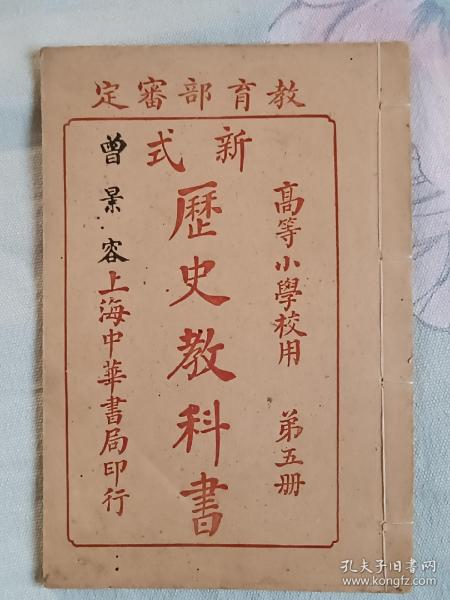 教育部審定
高等小學校用 第五册
新式
歷史教科書
曾景容
上海中華書局印行
孔夫子旧书网
www.kongfz.com